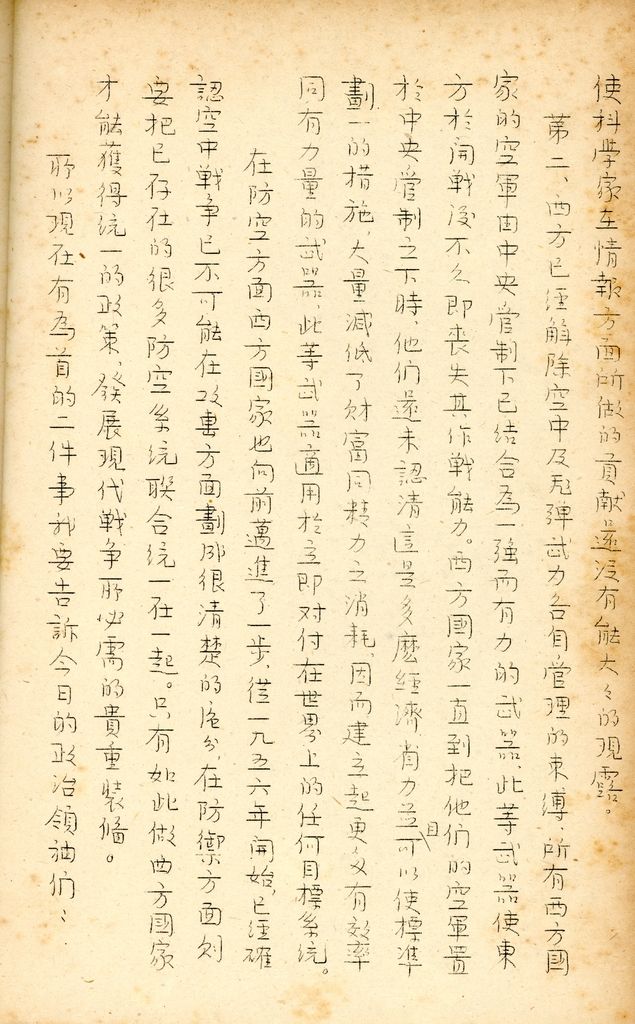 使科学家在情報方面所做的貢献還没有能大大的現露。
第二、西方已經解除空中及飞弹武力各自管理的束縛、所有西方國
家的空軍由中央管制下已结合為一强而有力的武器、此等武器使東
方於開戰後不久即丧失其作戰能力。西方國家一直到把他们的空軍置
於中央管制之下時、他们還未認清這是多麽經濟省力並且可以使標準
劃一的措施、大量減低了財富同精力之消耗、因而建立起更多有效率
同有力量的武器、此等武器適用於立即对付在世界上的任何目標系统。
在防空方面西方國家也向前邁進了一步、從一九五六年開始、已經確
認空中戰争已不可能在攻击方面劃那很清楚的區分、在防禦方面則
要把已存在的很多防空系统联合统一在一起。只有如此做西方國家
才能獲得统一的政策、發展現代戰争所必需的貴重裝備。
所以現在有為首的二件事我要告訴今日的政治領袖们：